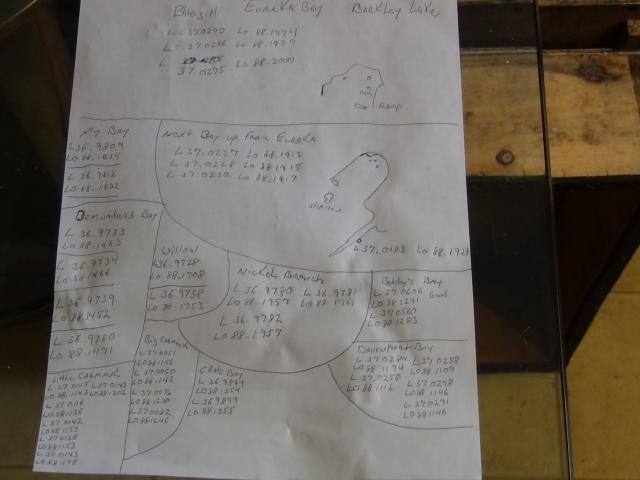 Eureka Bay Barkley Lake
L= 37.0270 Lo 88.1974
L= 37.0266 Lo 88.1977
L 37.0275 Lo 88.2000
Ramp
My Bay
L 36.9809
Lo 88.1834
L 36.9812
Lo 88.1832
Next Bay up From Eureka
L 37.0227 Lo 88.1913
L 37.0228 Lo 88.1915
L 37.0230 Lo 88.1917
Shallow
L 37.0183 Lo 88.192
Demumbers Bay
L 36.9733
Lo 88.1463
L 36.9734
Lo 88.1466
L 36.9739
Lo 88.1452
L 36.9780
Lo 88.1471
Willow
L 36.9728
Lo 88.1708
L 36.9738
Lo 88.1753
Nickell Branch
L 36.9780 L 36.9781
Lo 88.1957 Lo 88.1961
L 36.9782
Lo 88.1957
Bobby's Bay
L 37.0606 Good
Lo 88.1291
L 37.0560
Lo 88.1283
Davenport Bay
L 37.0284 L 37.0258
Lo 88.1194 Lo 88.1109
L 37.0258 L 37.0298
Lo 88.1116 Lo 88.1146
L 37.0291
Lo 88.1146
Little Carmack
L 37.0115 L 37.0143
Lo 88.1143 Lo 88.1202
L 37.0116
Lo 88.1136
L 37.0142
Lo 88.1153
L 37.0128
Lo 88.1153
L 37.0143
Lo 88.1178
Big Carmack
L 37.0051
Lo 88.1156
L 37.0050
Lo 88.1142
L 37.0076
Lo 88.1230
L 37.0022
Lo 88.1246
Bay
L 36.9899
Lo 88.1354
L 36.9899
Lo 88.1355